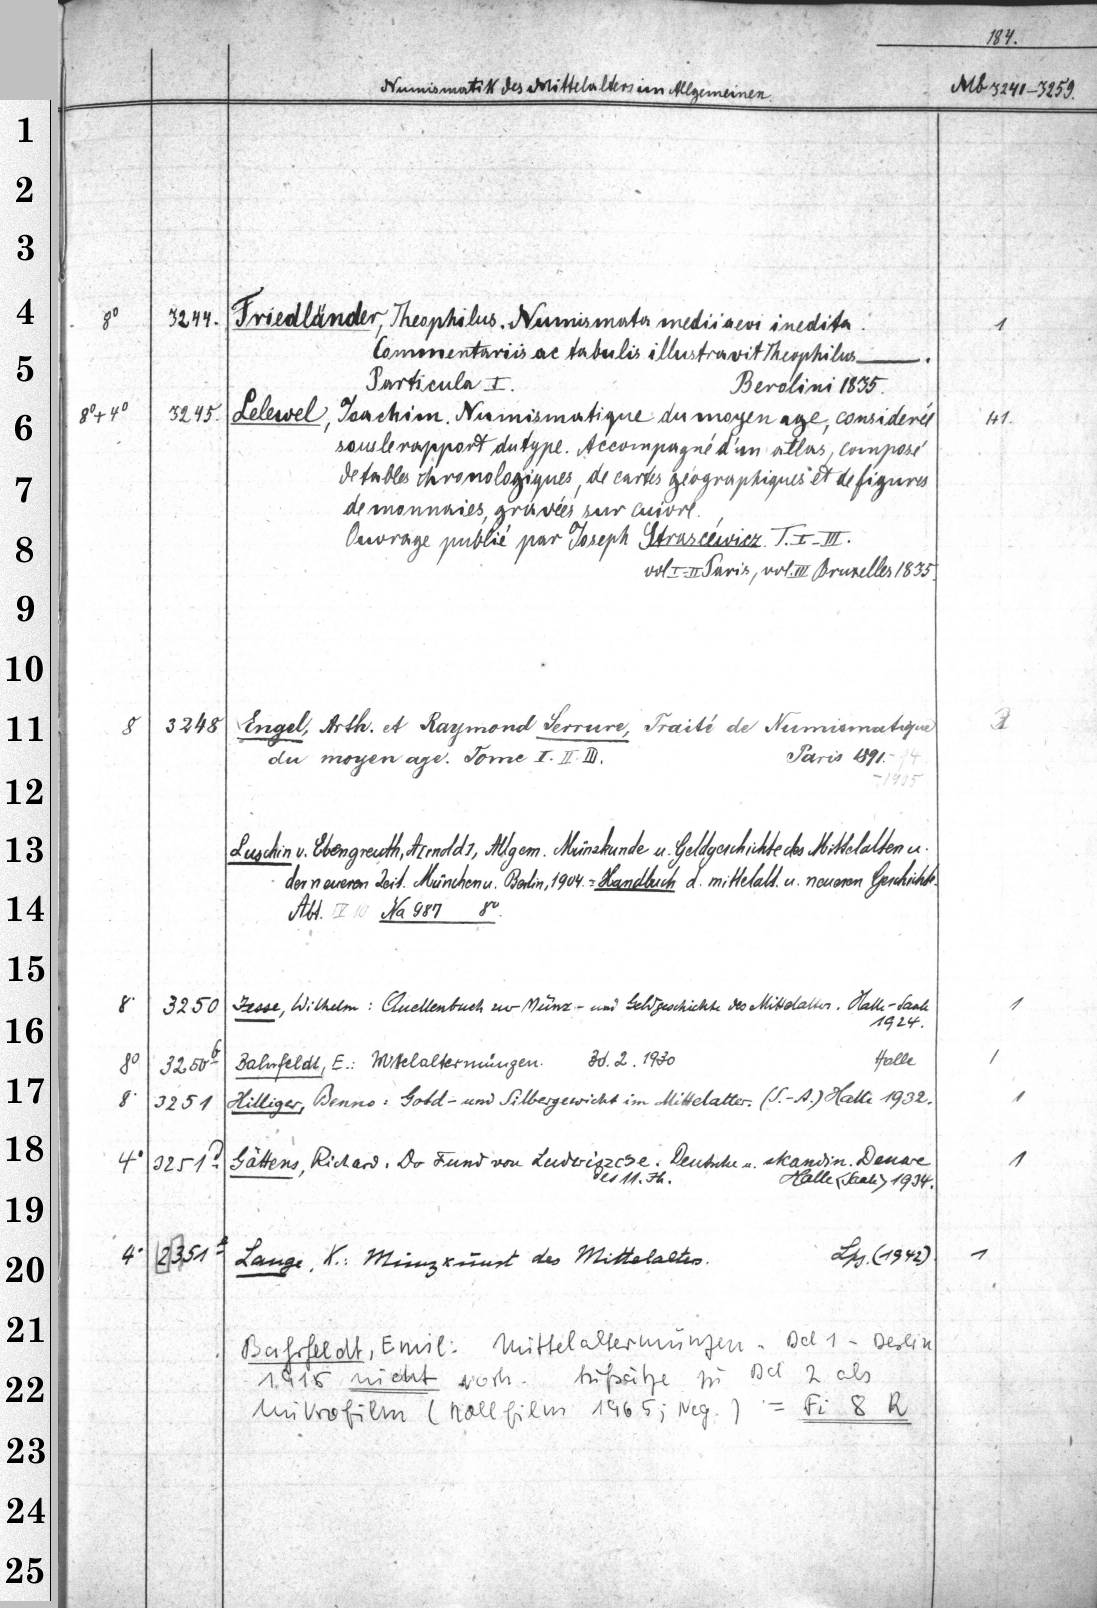 184.
Numismatik des Mittelalters im Allgemeinen.
Mb 3241-3259.
8° 3244. Friedländer, Theophilus. Numismata medii aevi inedita. 1
Commentariis ac tabulis illustravit Theophilus ——.
Particula I. Berolini 1835.
8°+4° 3245. Lelewel, Joachim. Numismatique du moyen age, considerée
sous le rapport du type. Accompagné d'un atlas, composé
de tables chronologiques, de cartes géographiques et de figures
de monnaies, gravées sur cuivre.
Ouvrage publié par Joseph Straszéwicz. T. I-III.
vol I-II Paris, vol. III Bruxelles 1835.
8 3248 Engel, Arth. et Raymond Serrure, Traité de Numismatique
du moyen age. Tome I. II. III. Paris 1891.-94
-1905
Luschin v. Ebengreuth, A[rnold], Allgem. Münzkunde u. Geldgeschichte des Mittelalters u.
der neueren Zeit. München u. Berlin, 1904. = Handbuch d. mittelalt. u. neueren Geschichte.
Abt. IV Na 987 8°.
8° 3250 Jesse, Wilhelm: Quellenbuch zur Münz- und Geldgeschichte des Mittelalters. Halle-Saale 1
1924.
8° 3250b Bahrfeldt, E.: Mittelaltermünzen. Bd. 2. 1930 Halle 1
8° 3251 Hilliger, Benno: Gold- und Silbergewicht im Mittelalter. (S.-A.) Halle 1932. 1
4° 3251a Gättens, Richard. Der Fund von Ludwiszcze. Deutsche u. skandin. Denare 1
des 11. Jh. Halle (Saale) 1934.
4° 2351 Lange, K.: Münzkunst des Mittelalters. Lpz. (1942). 1
Bahrfeldt, Emil: Mittelaltermünzen. Bd 1 - Berlin
1915 nicht vorh. Aufsätze zu Bd 2 als
Mikrofilm (Rollfilm 1965; Neg.) = Fi 8 R
1
2
3
4
5
6
7
8
9
10
11
12
13
14
15
16
17
18
19
20
21
22
23
24
25